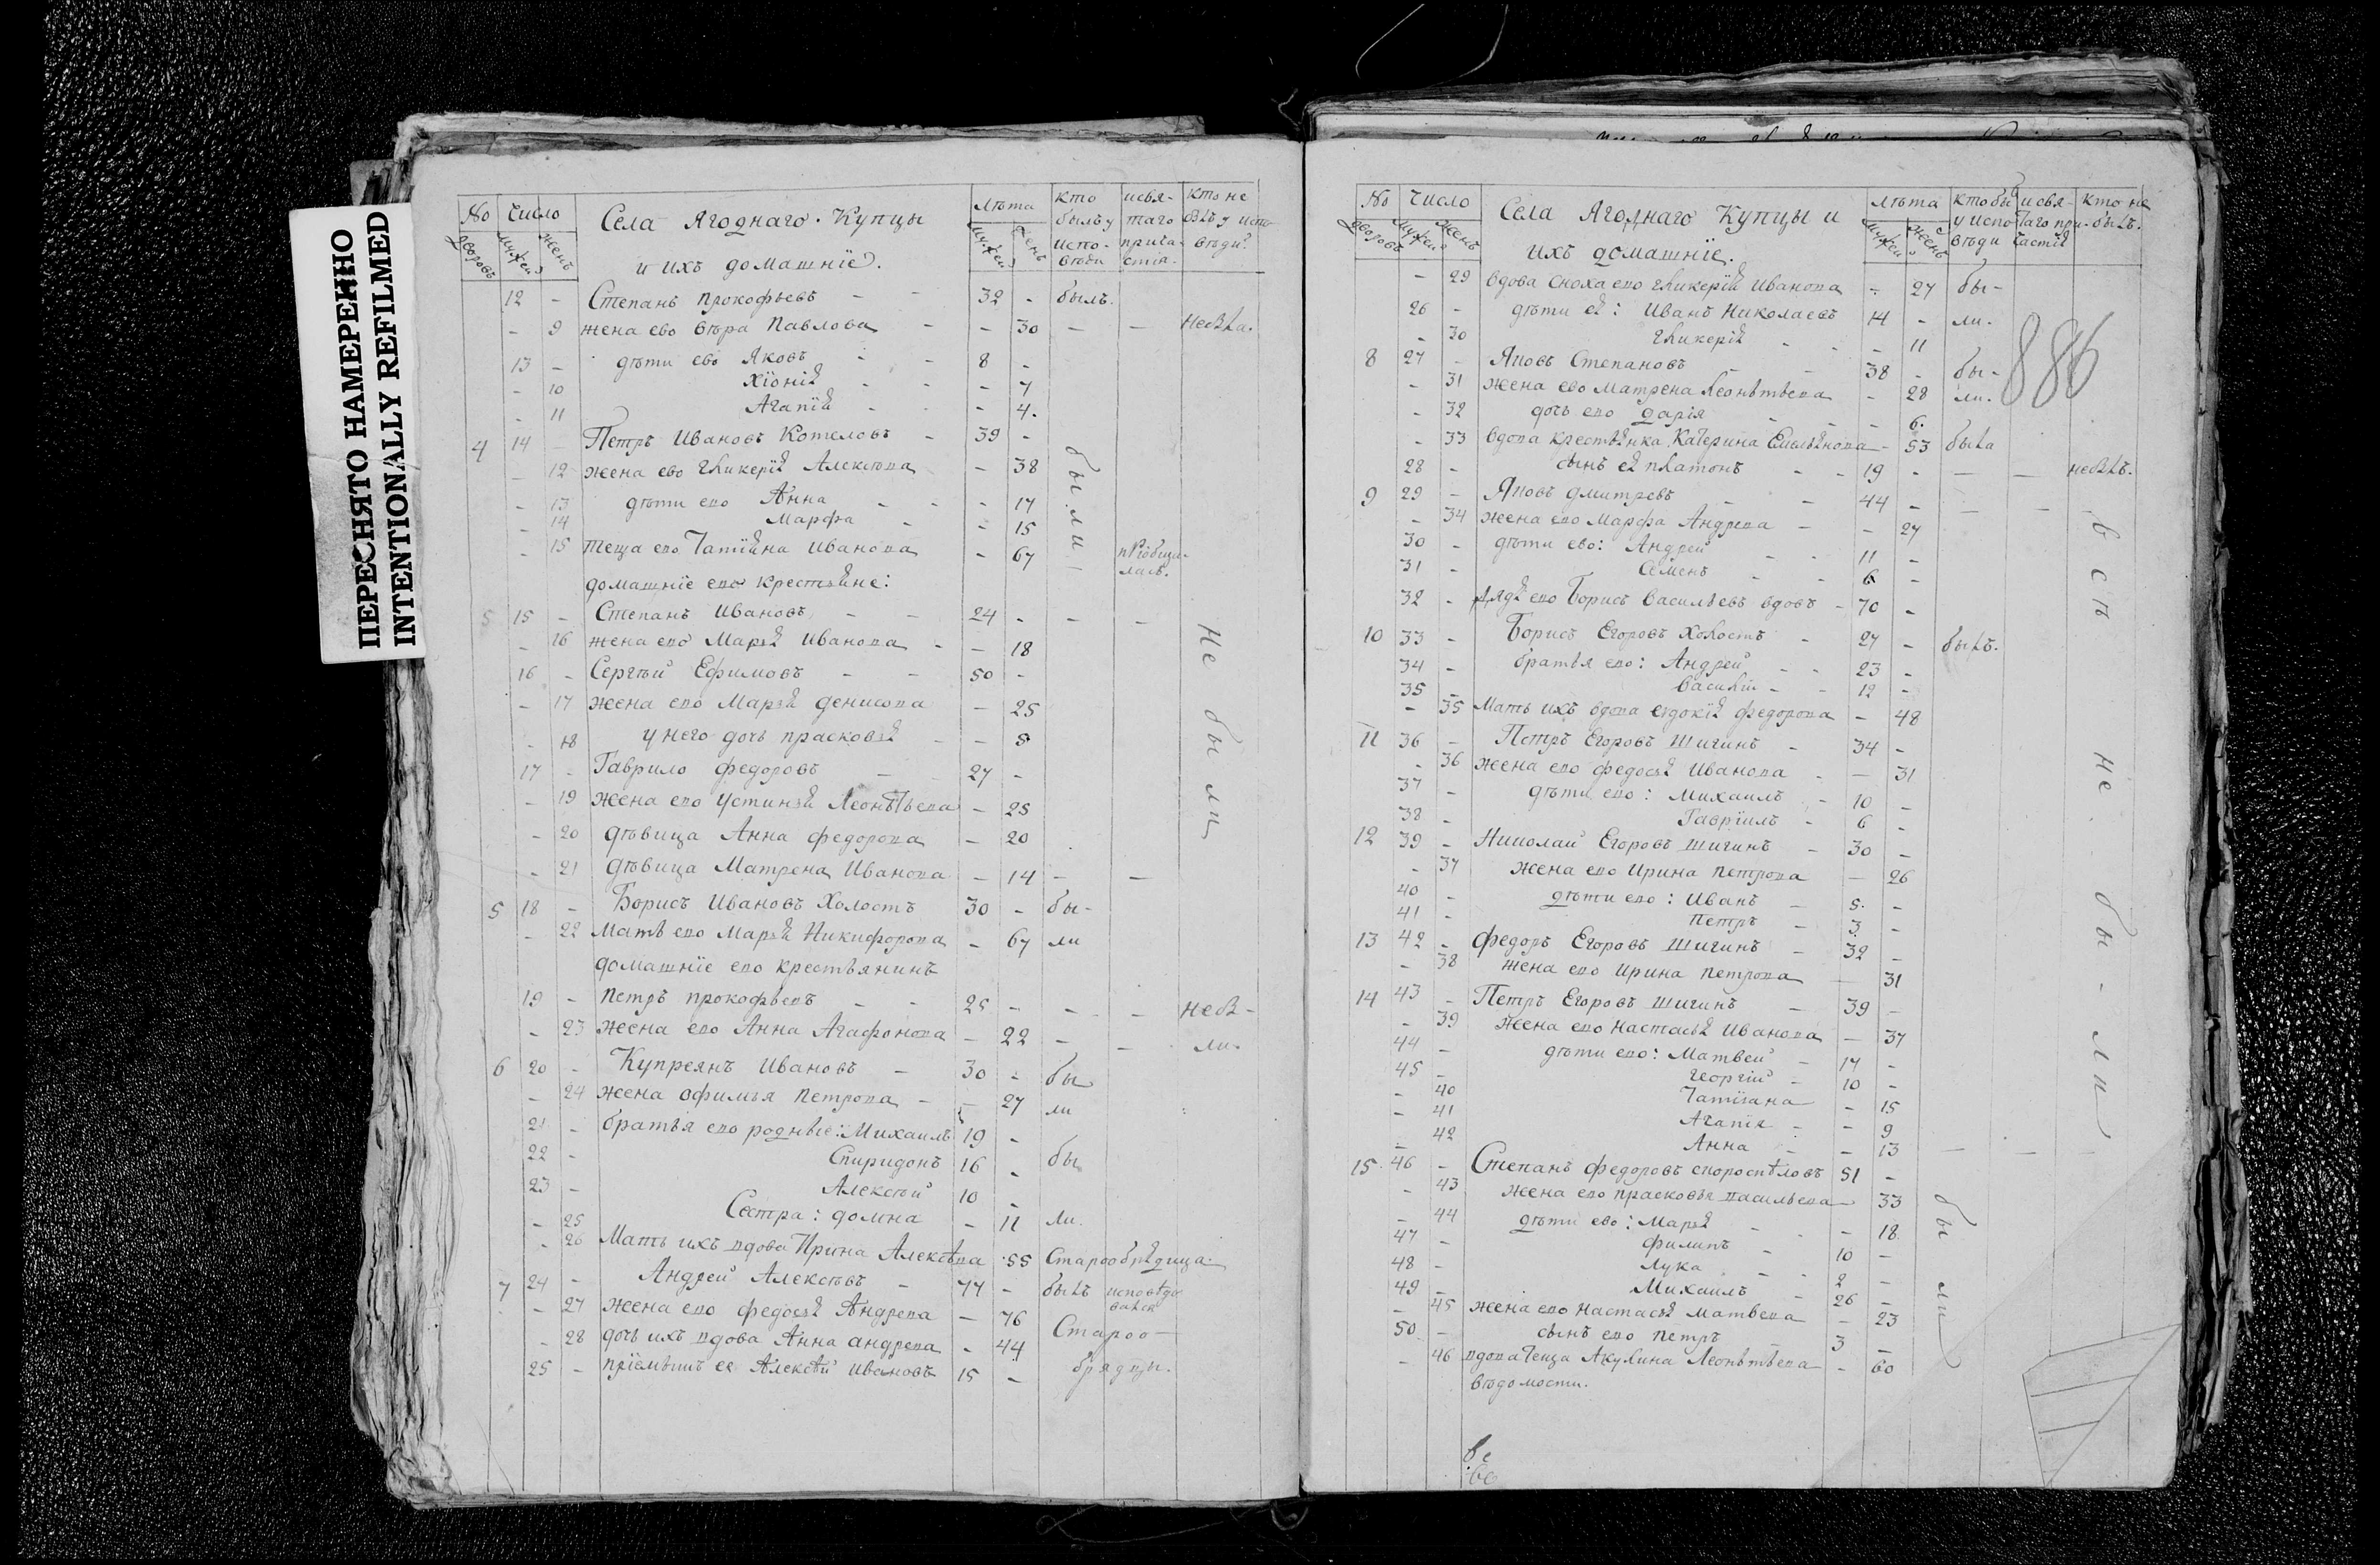 ПЕРЕСНЯТО НАМЕРЕННО
INTENTIONALLY REFILMED
No Число Села Ягоднаго Купцы Лѣта кто исвя- кто не
дворовъ мужей женъ и ихъ домашніе. мужей женъ былъ у таго былъ у испо-
испо- прича- вѣди
вѣди стіа
12 - Степанъ Прокофьевъ - - 32 - былъ.
- 9 жена ево Вѣра Павлова - - 30 - - небыла.
13 - дѣти ево Яковъ - - 8 -
- 10 Хіонія - - - 7
- 11 Агапія - - - 4.
4 14 - Петръ Ивановъ Котеловъ - 39 -
- 12 жена ево Гликерія Алексѣва - 38
- 13 дѣти ево Анна - - - 17
- 14 Марфа - - 15
- 15 теща ево Татіяна Иванова - 67
были
домашніе ево крестьяне:
5 15 - Степанъ Ивановъ - - 24 - - -
- 16 жена ево Марья Иванова - - 18
16 - Сергѣй Ефимовъ - - 50 -
- 17 жена ево Марья Денисова - 25
- 18 у него дочь Прасковья - - 5
17 - Гаврило Федоровъ - 27 -
- 19 жена ево Устинья Леонтьева - 25
- 20 дѣвица Анна Федорова - 20
- 21 дѣвица Матрена Иванова - 14 - -
не были
5 18 - Борисъ Ивановъ Холостъ 30 - бы-
- 22 Мать ево Марья Никифорова - 67 ли
домашніе ево крестьянинъ
19 - Петръ Прокофьевъ - - 25 - - - небы-
- 23 жена ево Анна Агафонова - 22 - - ли.
6 20 - Купреянъ Ивановъ - 30 - бы
- 24 жена Офимья Петрова - - 27 ли
21 - братья ево родные: Михаилъ 19 -
22 - Спиридонъ 16 - бы
23 - Алексѣй 10 -
- 25 Сестра: Домна - 11 ли.
- 26 Мать ихъ вдова Ирина Алексѣва 55 Старообрядица
7 24 - Андрей Алексѣвъ - 77 - былъ
- 27 жена ево Федосья Андрева - 76
- 28 дочь ихъ вдова Анна Андрева - 44 Староо-
25 - пріемышъ ее Алексѣй Ивановъ 15 - брядцы.
No Число Села Ягоднаго Купцы и Лѣта кто бы исвя- кто не
дворовъ мужей женъ ихъ домашніе. мужей женъ у испо таго при- былъ.
вѣди частія
- 29 вдова сноха ево Гликерія Иванова - 27 бы-
26 - дѣти ея: Иванъ Николаевъ 14 - ли.
- 30 Гликерія - - - 11
886
8 27 - Яковъ Степановъ - - 38 - бы-
- 31 жена ево Матрена Леонтьева - 28 ли.
- 32 дочь ево Дарія - - - 6.
- 33 вдова крестьянка Катерина Емельянова - 53 была
28 - сынъ ея Платонъ - - 19 - - - небылъ.
9 29 - Яковъ Дмитревъ - - 44 - - -
- 34 жена ево Марфа Андрева - - 27
30 - дѣти ево: Андрей - - 11 -
31 - Семенъ - - 6 -
32 - дядя ево Борисъ Васильевъ вдовъ - 70 -
10 33 - Борисъ Егоровъ Холостъ - 27 - былъ.
34 - братья ево: Андрей - - 23 -
35 - Василій - - 12 -
- 35 Мать ихъ вдова Евдокія Федорова - 48
11 36 - Петръ Егоровъ Шигинъ - 34 -
- 36 жена ево Федосья Иванова - - 31
37 - дѣти ево: Михаилъ - 10 -
38 - Гавріилъ - 6 -
12 39 - Николай Егоровъ Шигинъ - 30 -
- 37 жена ево Ирина Петрова - 26
40 - дѣти ево: Иванъ - 5. -
41 - Петръ - 3 -
13 42 - Федоръ Егоровъ Шигинъ - 32 -
- 38 жена ево Ирина Петрова - 31
14 43 - Петръ Егоровъ Шигинъ - 39 -
- 39 жена ево Настасья Иванова - 37
44 - дѣти ево: Матвей - 17 -
45 - Георгій - 10 -
- 40 Татіана - 15
- 41 Агапія - - 9
- 42 Анна - - 13 - - -
всѣ не бы-ли
15 46 - Степанъ Федоровъ Скороспѣловъ 51 -
- 43 жена ево Прасковья Васильева - 33
- 44 дѣти ево: Марья - - 18
47 - Филипъ - 10 -
48 - Лука - - 2 -
49 - Михаилъ - 26 -
- 45 жена ево Настасья Матвева - 23
50 - сынъ ево Петръ 3 -
- 46 вдова теща Акулина Леонтьева - 60
были
вѣдомости.